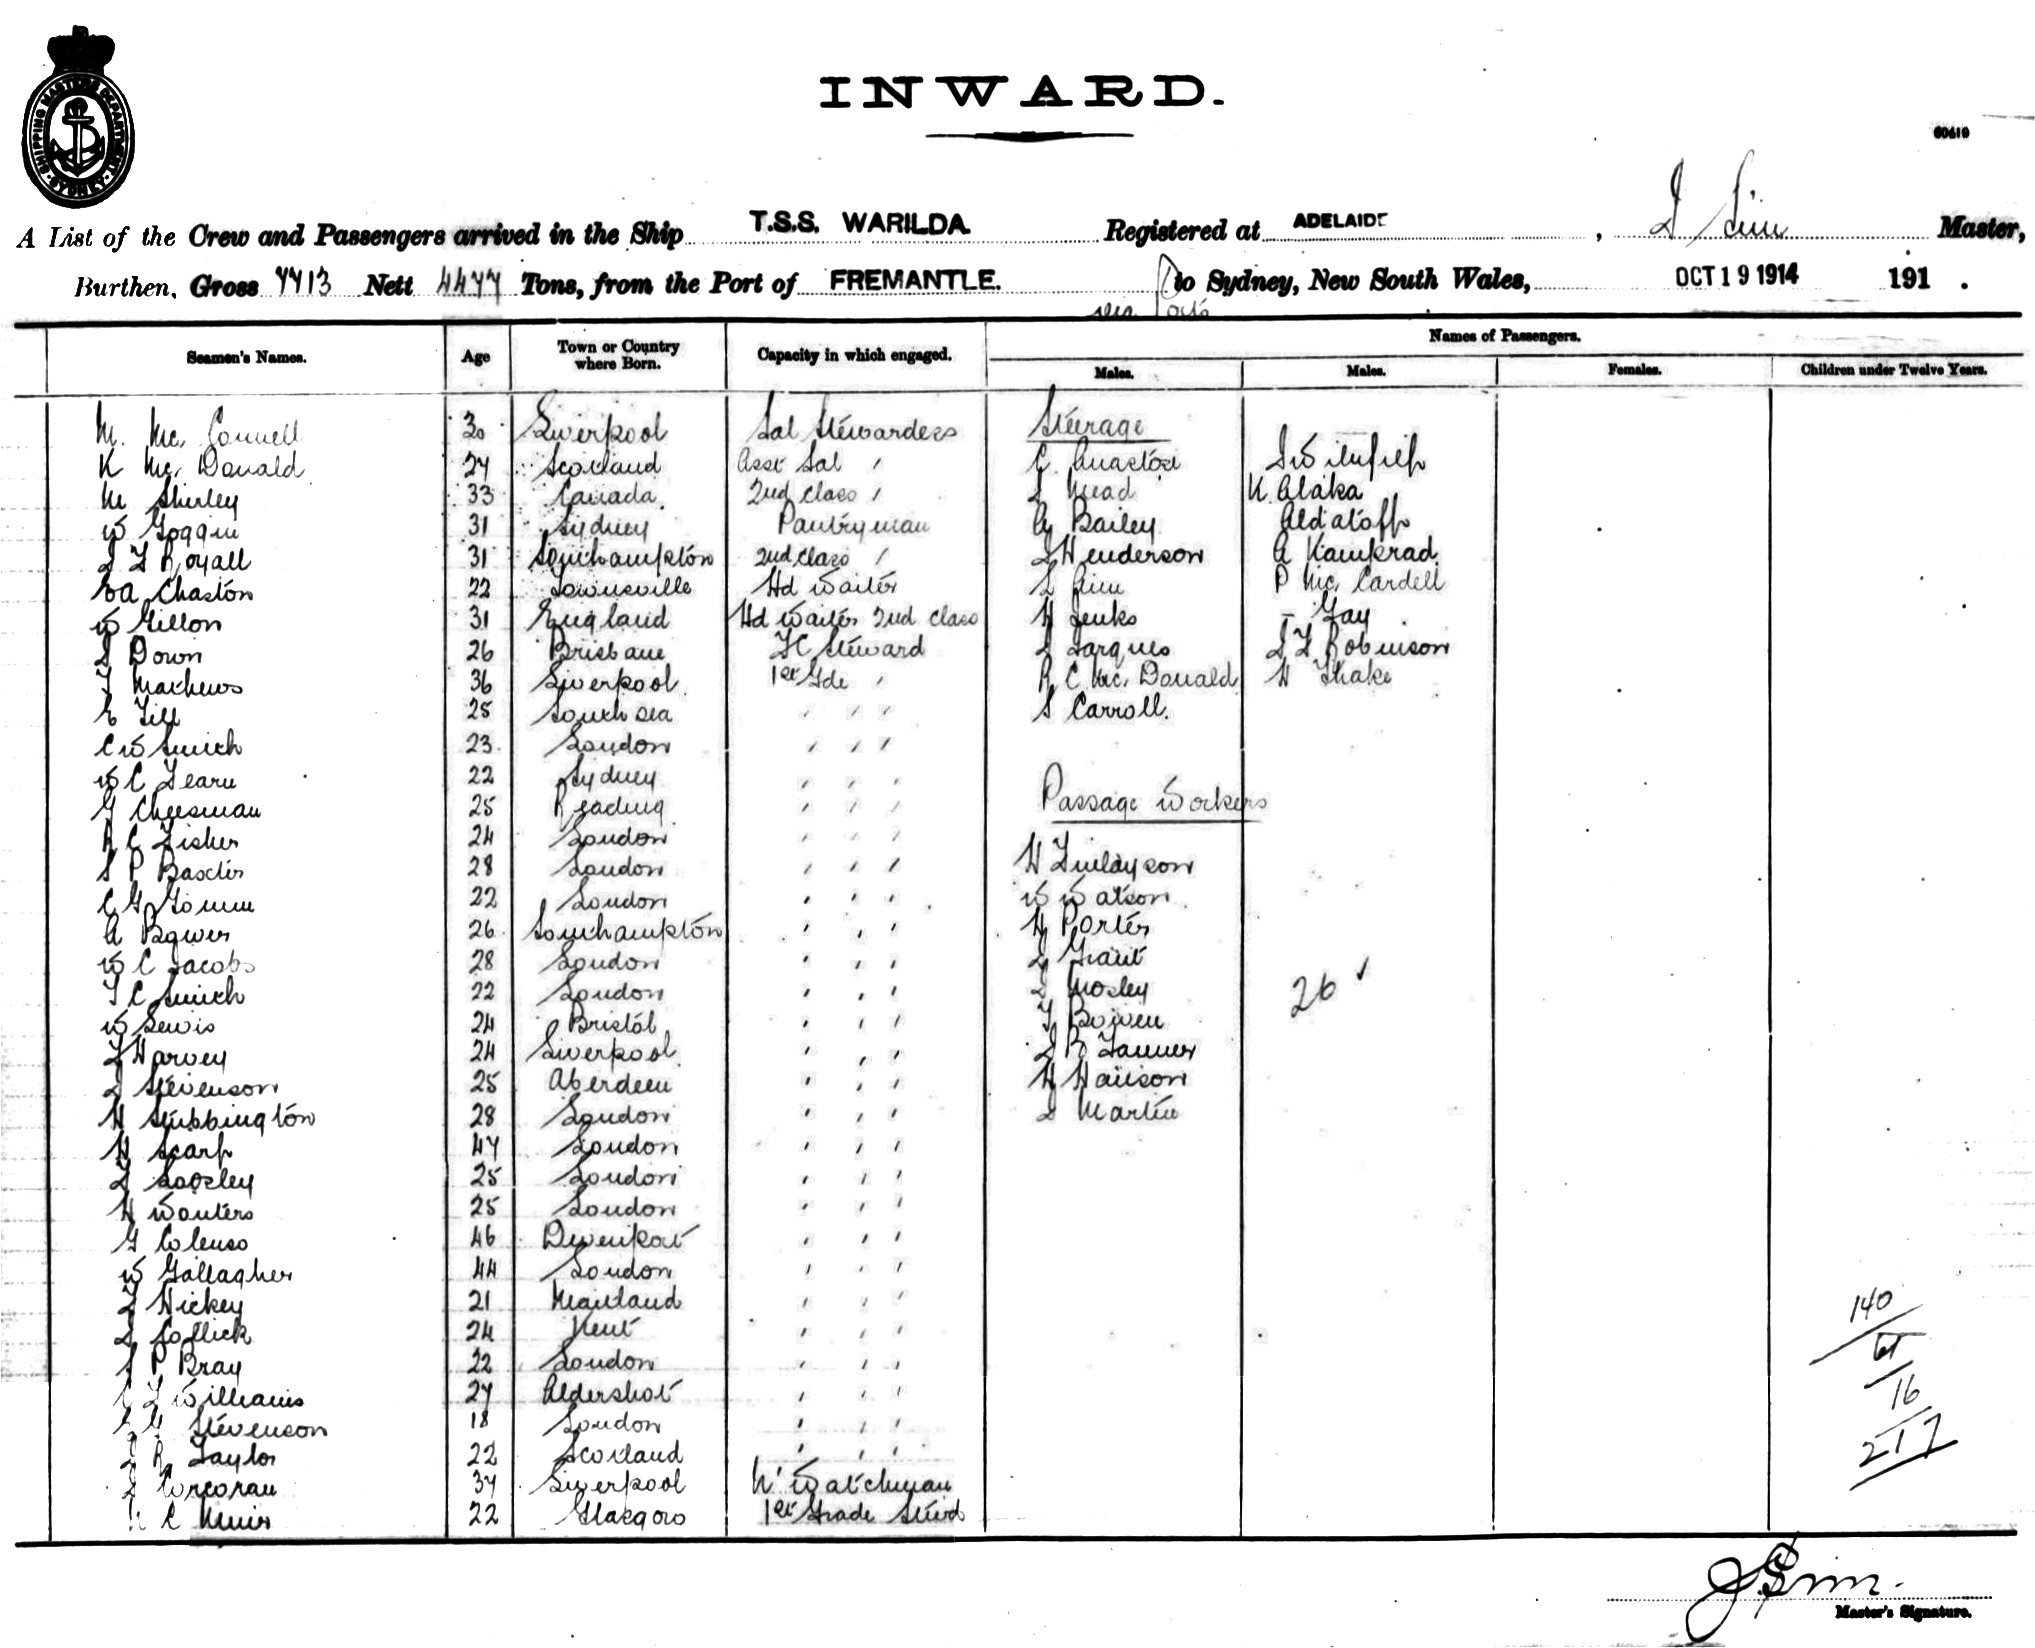 SHIPPING MASTER'S DEPARTMENT SYDNEY
INWARD.
60419
A List of the Crew and Passengers arrived in the Ship T.S.S. WARILDA Registered at ADELAIDE, J Sim Master,
Burthen, Gross 7713 Nett 4477 Tons, from the Port of FREMANTLE. via Ports to Sydney, New South Wales, OCT 19 1914 191 .
Seamen's Names. Age Town or Country where Born. Capacity in which engaged. Names of Passengers.
Males. Males. Females. Children under Twelve Years.
M. Mc. Connell 30 Liverpool Sal Stewardess Steerage
K Mc. Donald 27 Scotland Asst Sal "
M Shirley 33 Canada 2nd Class " Mead K Alaka
W Goggin 31 Sydney Pantryman Bailey Aldatoff
Royall 31 Southampton 2nd Class " Henderson A Kamprad
Chaston 22 Townsville Hd Waiter P Mc. Cardell
W Gillon 31 England Hd Waiter 2nd Class H Jenks - Gay
Down 26 Brisbane Steward Jarques Robinson
Mathews 36 Liverpool 1st Gde " R C Mc. Donald H Thake
E Till 25 Southsea " " " S Carroll.
C W Smith 23 London " " "
W C Fearn 22 Sydney " " "
G Cheesman 25 Reading " " " Passage Workers
R C Fisher 24 London " " "
S P Baxter 28 London " " " H Finlayson
C G Gomm 22 London " " " W Watson
A Bower 26 Southampton " " " H Porter
W C Jacobs 28 London " " " Grant
C Smith 22 London " " " Mosley 26 ✓
W Lewis 24 Bristol " " " Bowen
Harvey 24 Liverpool " " " Tanner
Stevenson 25 Aberdeen " " " H Hanson
H Stubbington 28 London " " " Martin
H Scarf 47 London " " "
Loosley 25 London " " "
H Wouters 25 London " " "
G Colenso 46 Devenport " " "
W Gallagher 44 London " " "
Hickey 21 Maitland " " "
Collick 24 Kent " " " 140
P Bray 22 London " " " 61
Williams 27 Aldershot " " " 16
Stevenson 18 London " " "
R Taylor 22 Scotland " " " 217
Corcoran 37 Liverpool N' Watchman
C Muir 22 Glasgow 1st Grade Stewd
J Sim.
Master's Signature.